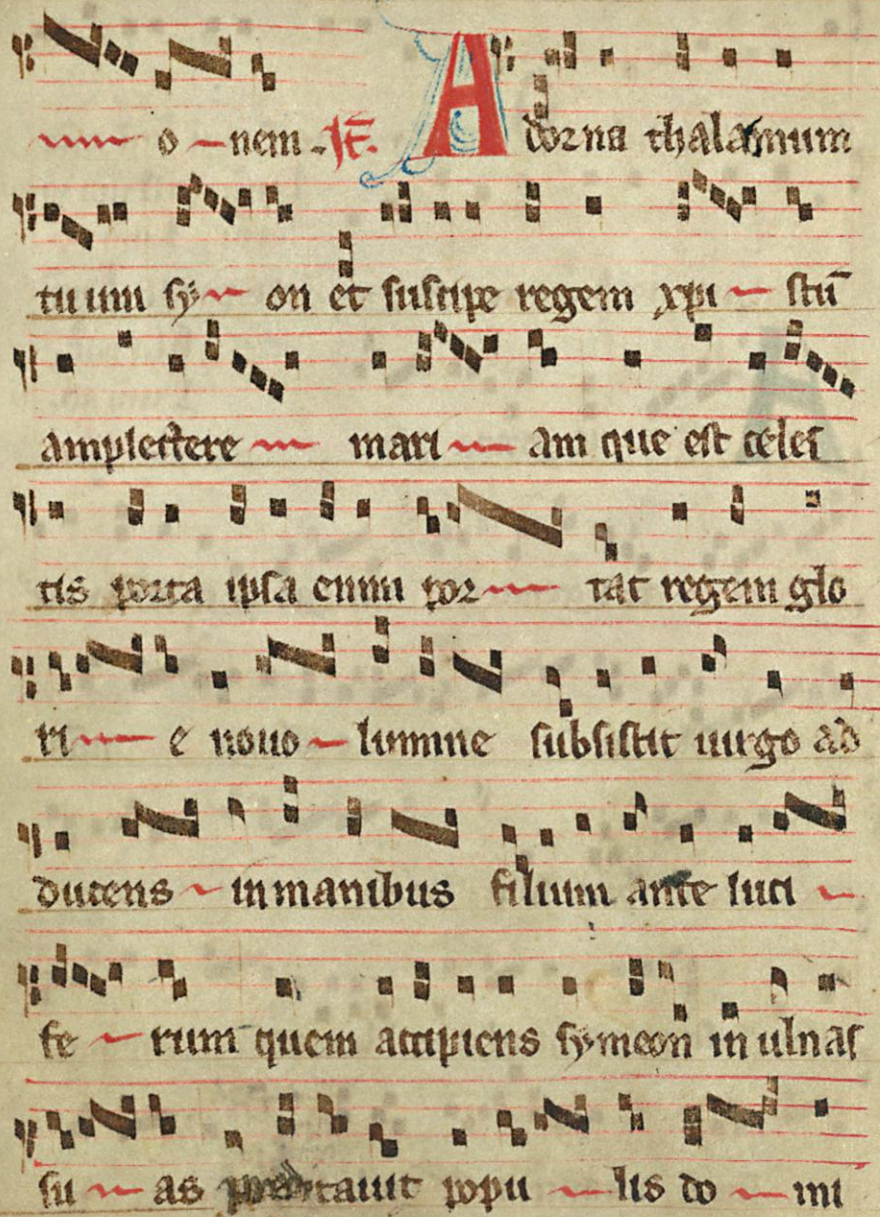 o nem. Adorna thalamum
tuum sy on et suscipe regem xpi stū
amplectere mari am que est celes
tis porta ipsa enim por tat regem glo
ri e nouo lumine subsistit uirgo ad
ducens in manibus filium ante luci
fe rum quem accipiens symeon in ulnas
su as predicauit popu lis do mi